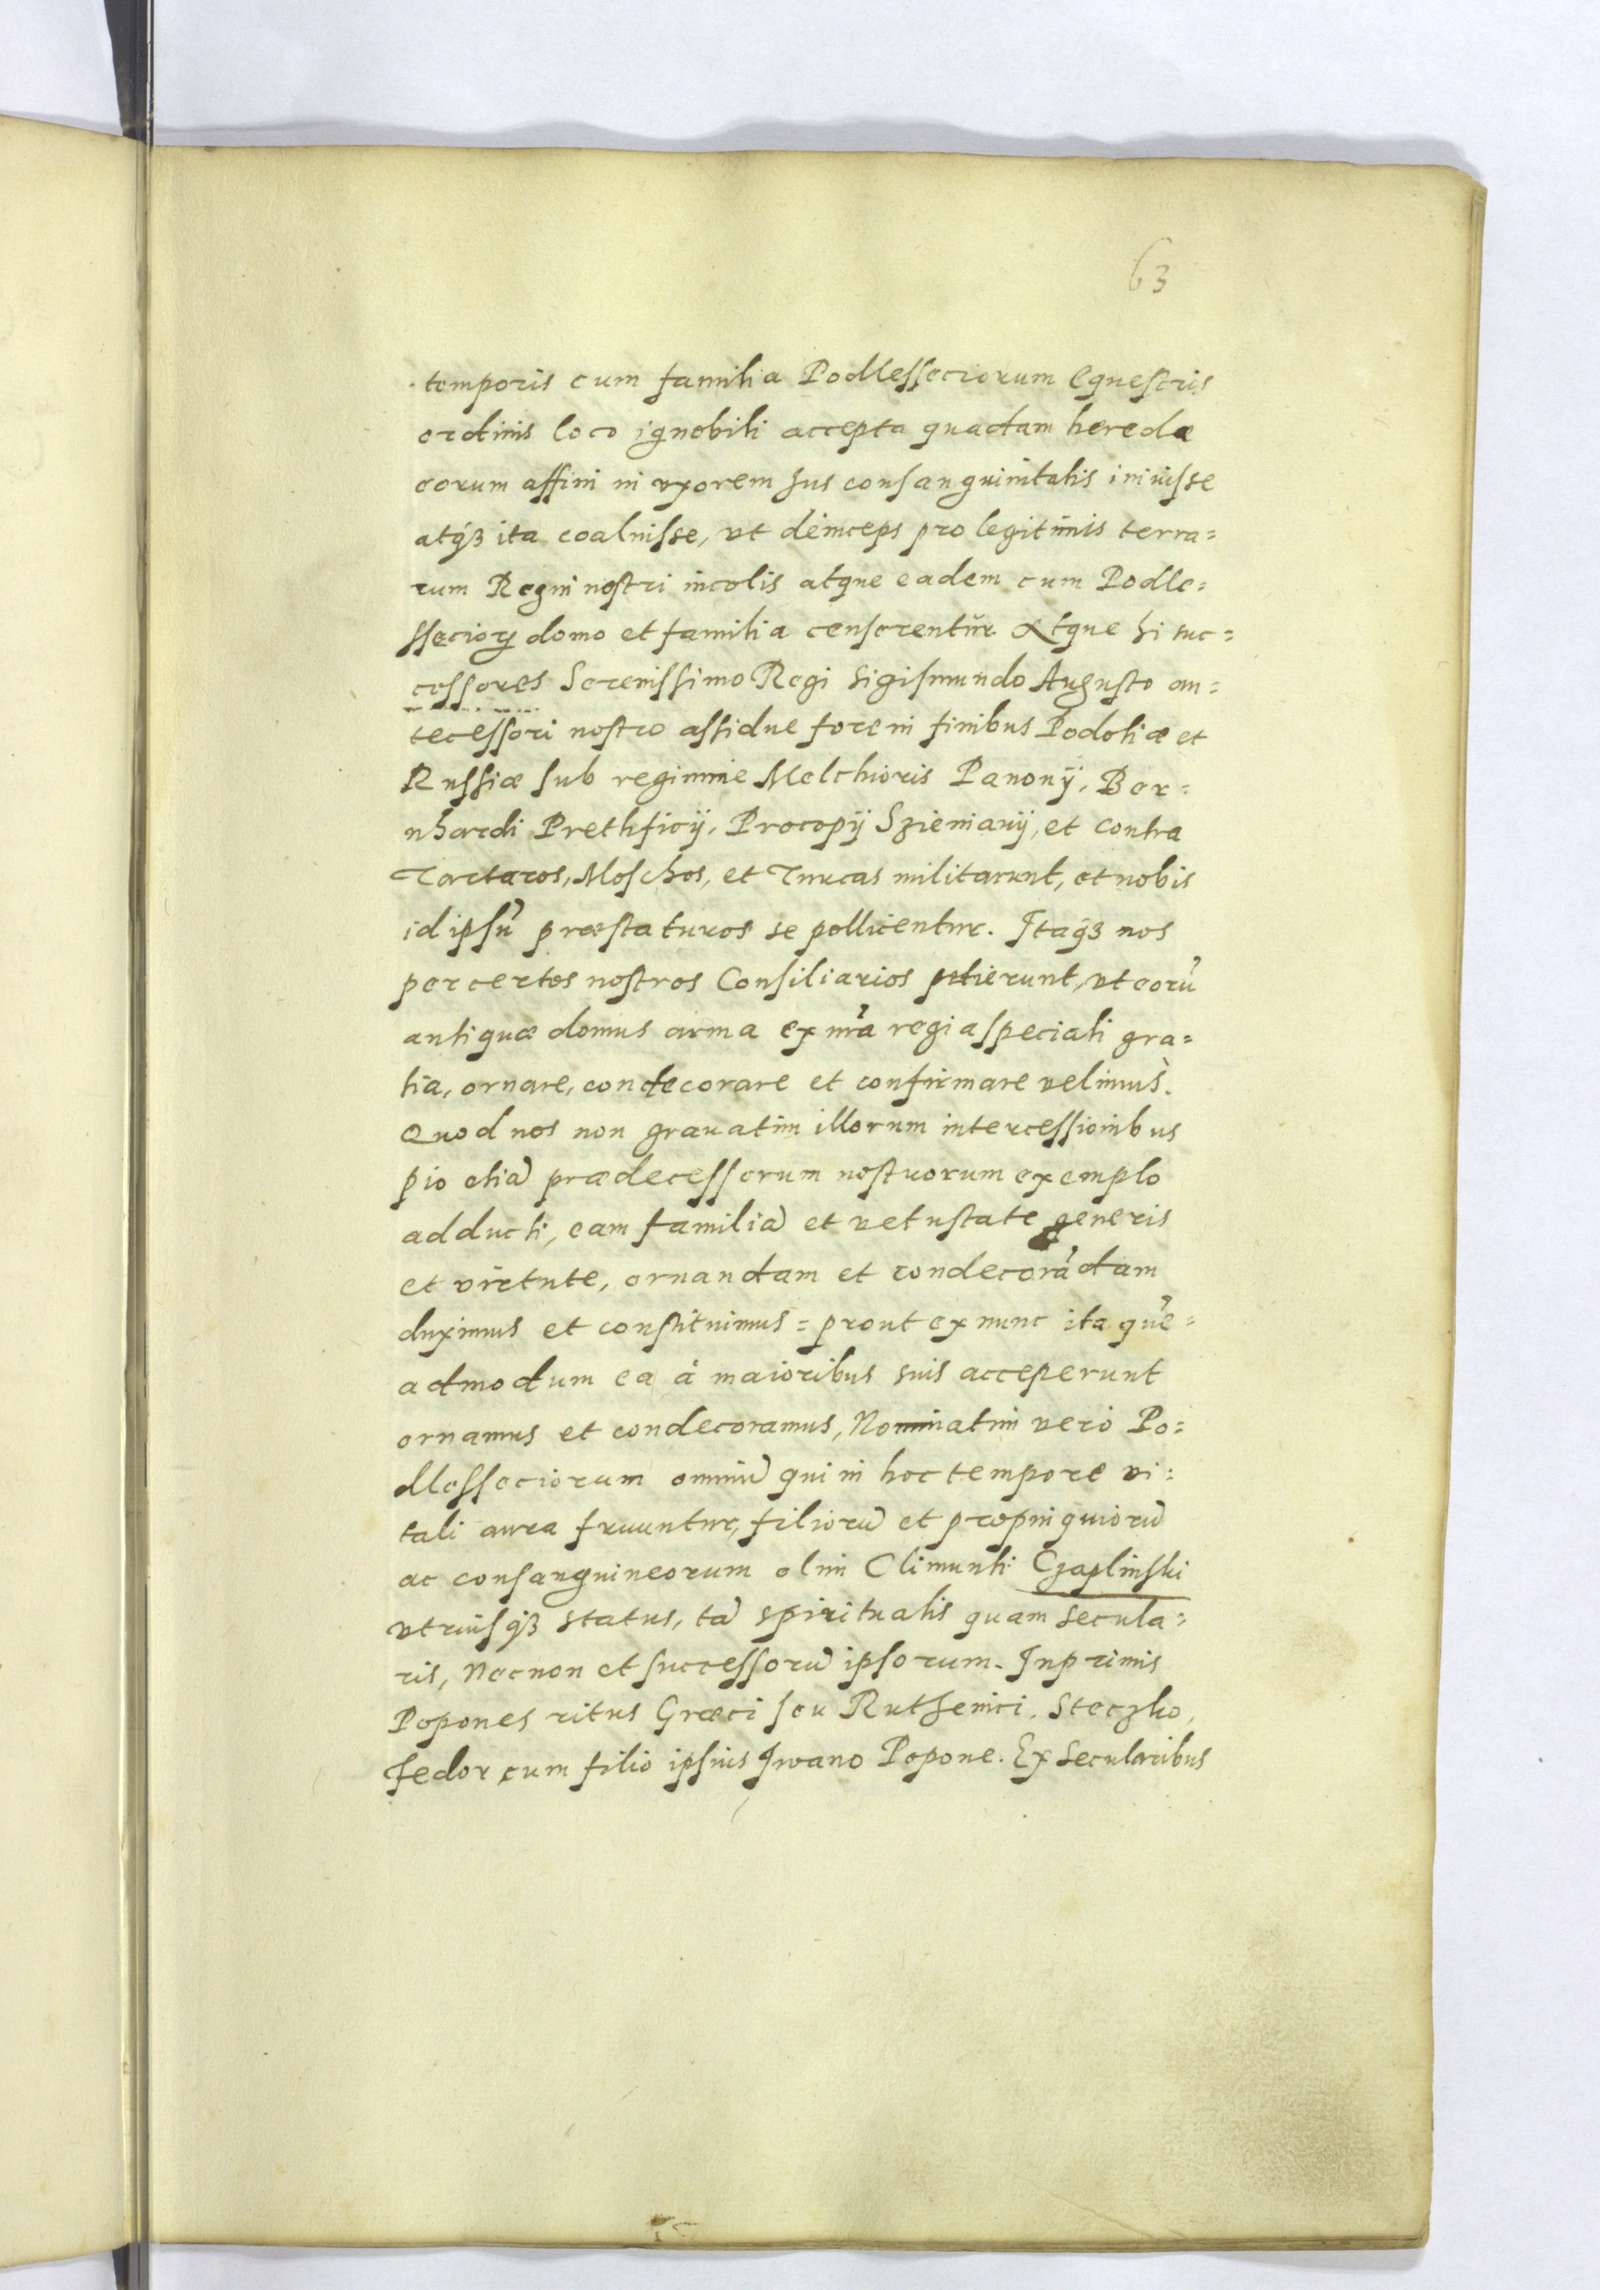 63
temporis cum familia Podlesseciorum Equestris
ordinis loco ignobili accepta quadam herede
eorum affini in vxorem Jus consanguinitatis iniuisse
atqȝ ita coaluisse, vt deinceps pro legitimis terra=
rum Regni nostri incolis atque eadem cum Podle=
sseciorꝝ domo et familia censerentur Atque hi suc=
cessores Serenissimo Regi Sigismundo Augusto an=
tecessori nostro assidue fore in finibus Podoliæ et
Russiæ sub regimine Melchioris Panonÿ, Ber=
nhardi Prethficÿ, Procopÿ Szieniauÿ, et contra
Tartaros, Moschos, et Turcas militarunt, et nobis
id ipsũ præstaturos se pollicentur. Itaqȝ nos
per certos nostros Consiliarios petierunt, vt eorũ
antiquæ domus arma ex nr̃a regia speciali gra=
tia, ornare, condecorare et confirmare velimus.
Quod nos non grauatim illorum intercessionibus
pio etiã prædecessorum nostrorum exemplo
adducti, eam familiã et vetustate generis
et virtute, ornandam et condecorãdam
duximus et constituimus = prout ex nunc ita quẽ=
admodum ea à maioribus suis acceperunt
ornamus et condecoramus, Nominatim vero Po=
dlesseciorum omniũ qui in hoc tempore vi=
tali aura fruuntur, filiorũ et propinquiorũ
ac consanguineorum olim Climunti Czaplinski
vtriusqȝ status, tã spiritualis quam secula=
ris, Necnon et successorũ ipsorum. Inprimis
Popones ritus Græci seu Ruthenici. Steczko,
Fedor cum filio ipsius Iwano Popone. Ex Secularibus